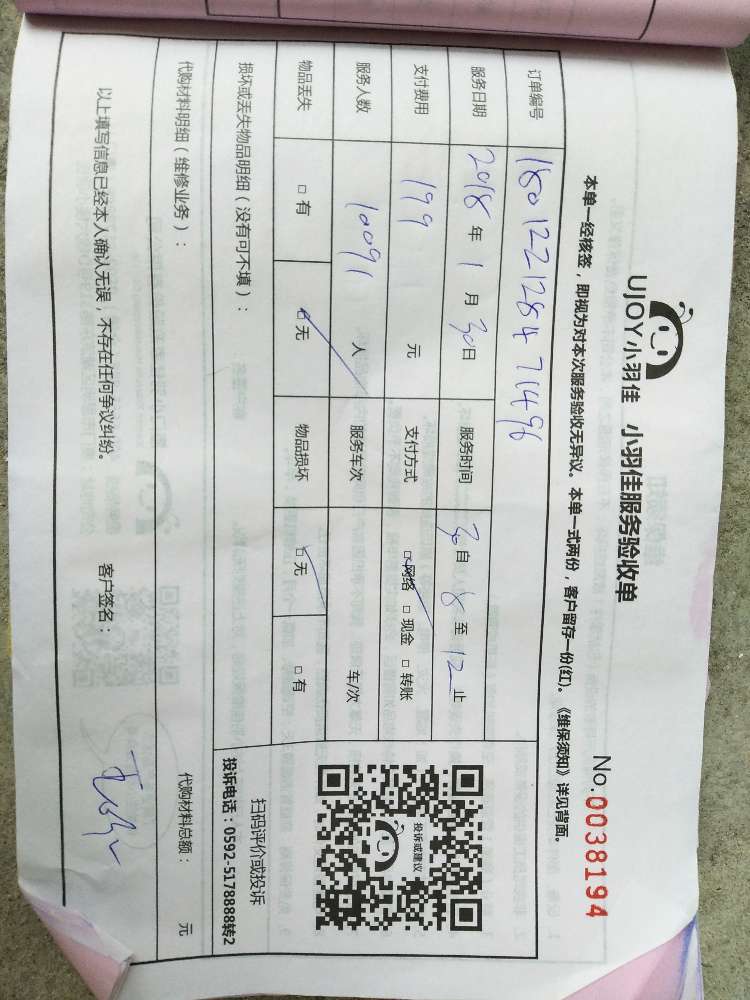 UJOY小羽佳 小羽佳服务验收单
No.0038194
本单一经核签，即视为对本次服务验收无异议。本单一式两份，客户留存一份(红)。《维保须知》详见背面。
订单编号 180122128471496
服务日期 2018年1月30日 服务时间 30自8至12止
支付费用 199元 支付方式 □网络 □现金 □转账
服务人数 10091人 服务车次 车/次
物品丢失 □有 □无 物品损坏 □无 □有
投诉或建议
扫码评价或投诉
投诉电话：0592-5178888转2
损坏或丢失物品明细（没有可不填）：
代购材料明细（维修业务）： 代购材料总额： 元
以上填写信息已经本人确认无误，不存在任何争议纠纷。 客户签名：